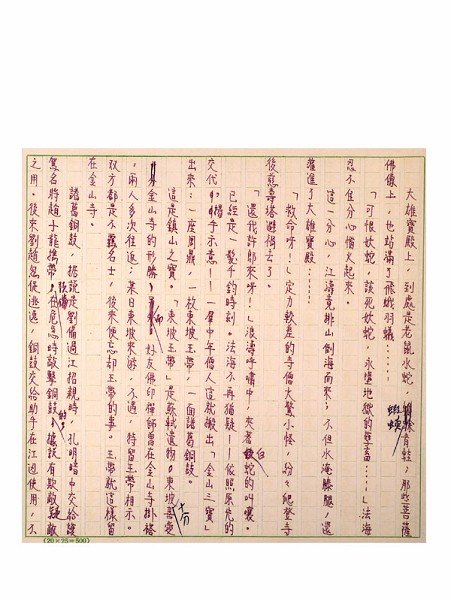 大雄寶殿上，到處是老鼠水蛇，青蛙；那些菩薩
佛像上，也站滿了飛蛾羽蟻……
「可恨妖蛇，該死妖蛇，永墮地獄的孽畜……」法海
忍不住分心惱火起來。
這一分心，江濤竟排山倒海而來；不但水淹膝腿，還
灌進了大雄寶殿……
「救命呀！」定力較差的寺僧大驚小怪，紛紛爬登寺
後慈壽塔避禍去了。
「還我許郎來呀！」浪濤呼嘯中，夾著白蛇的叫嚷。
已經是一髮千鈞時刻。法海不再猶疑——依照原先的
交代，手示意——一群中年僧人這就搬出「金山三寶」
出來：一座周鼎，一枚東坡玉帶，一面諸葛銅鼓。
這是鎮山之寶。「東坡玉帶」是蘇軾遺物。東坡十分喜愛
金山寺的形勝，而好友佛印禪師曾在金山寺掛褡
，兩人多次往返；某日東坡來遊，不遇，特留玉帶相示。
雙方都是不羈名士，後來便忘却玉帶的事。玉帶就這樣留
在金山寺。
諸葛銅鼓，據說是劉備過江招親時，孔明暗中交給護
駕名將趙子龍攜帶，危急時敲擊銅鼓的，據說有欺敵疑敵
之用。後來劉趙怱促逃遁，銅鼓交給助手在江邊使用，不
(20×25=500)